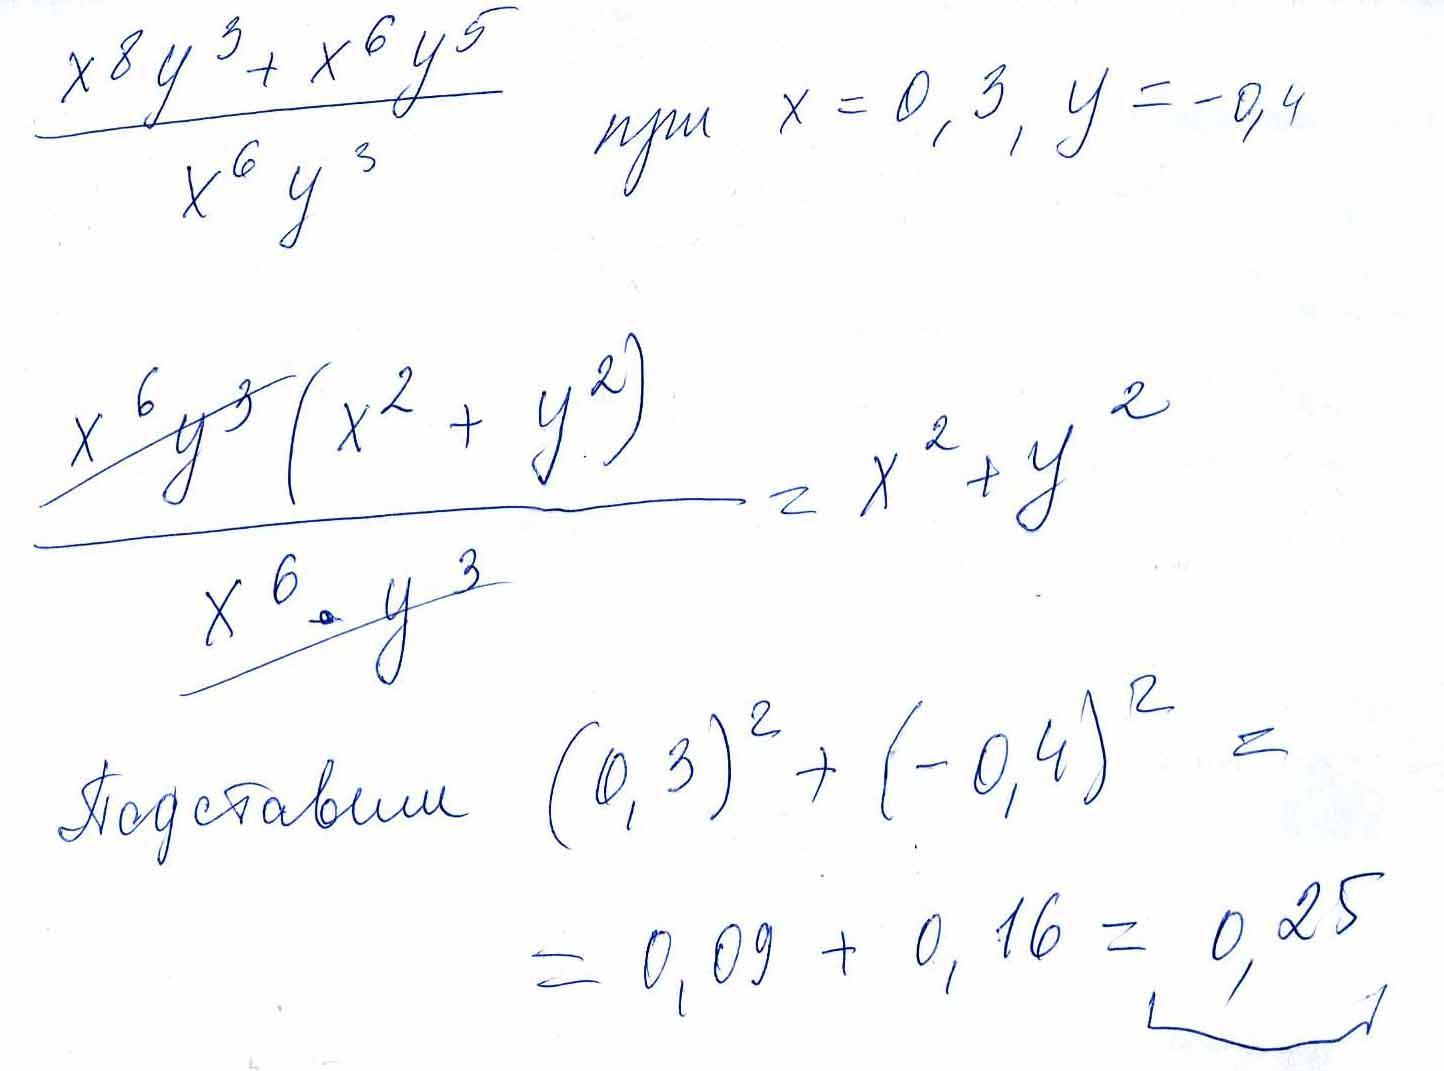 x⁸y³ + x⁶y⁵
x⁶y³
при x = 0,3, y = -0,4
x⁶y³(x² + y²)
x⁶ · y³
= x² + y²
Подставим (0,3)² + (-0,4)² =
= 0,09 + 0,16 = 0,25